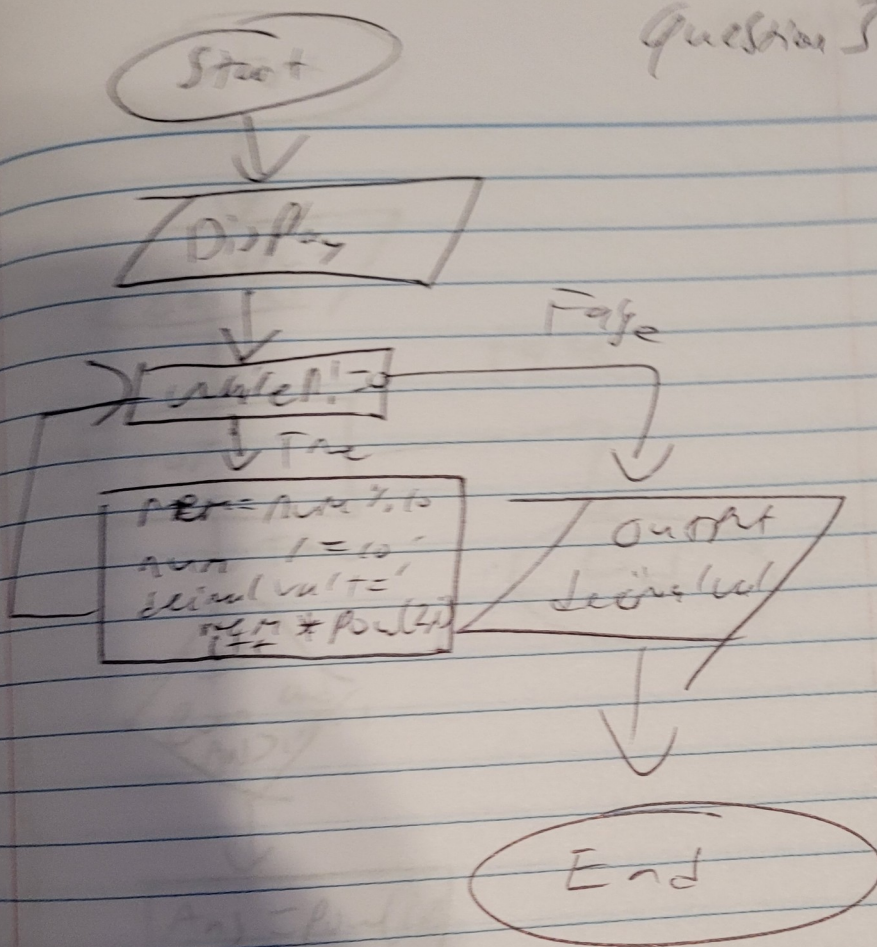 Question 3
Start
Display
False
while n!=0
True
rem = num % 10
num /= 10
decimal val +=
rem * pow(2,i)
i++
output
decimal val
End